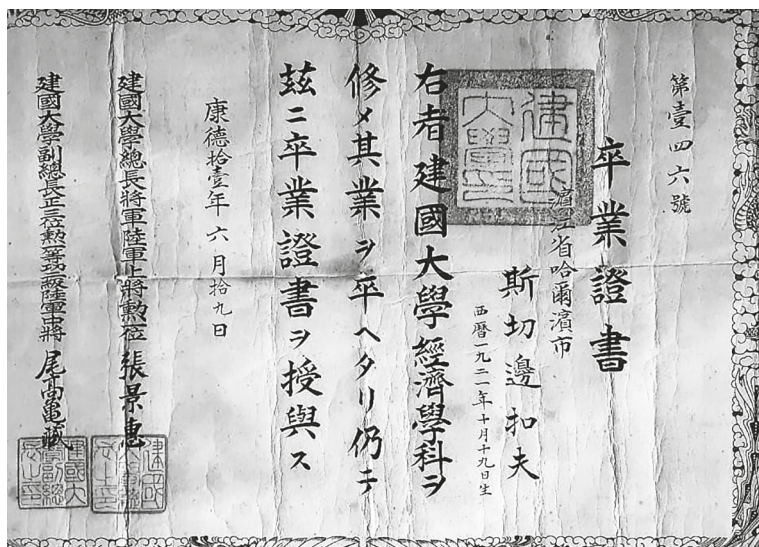 第壹四六號
卒業證書
濱江省哈爾濱市
斯切邊扣夫
西曆一九二一年十月十九日生
右者建國大學經濟學科ヲ
修メ其業ヲ卒ヘタリ仍テ
玆ニ卒業證書ヲ授與ス
康德拾壹年六月拾九日
建國大學總長將軍陸軍上將勲一位 張景惠
建國大學副總長正三位勲一等功四級陸軍中將 尾高龜藏
建國大學之印